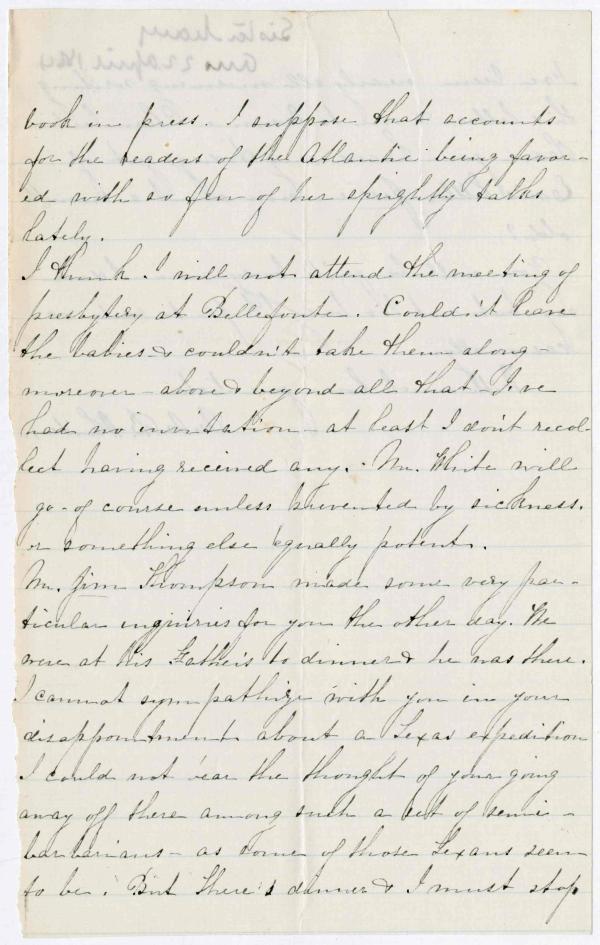 Sister Mary
Ans 22 April /84
book in press. I suppose that accounts
for the readers of the Atlantic being favor-
ed with so few of her sprightly talks
lately.
I think I will not attend the meeting of
presbytery at Bellefonte. Couldn't leave
the babies & couldn't take them along -
moreover - above & beyond all that - I've
had no invitation - at least I don't recol-
lect having received any. Mr. White will
go - of course unless prevented by sickness.
or something else equally potent.
Mr. Jim Thompson made some very par-
ticular inquiries for you the other day. We
were at his Father's to dinner & he was there.
I cannot sympathize with you in your
disappointment about a Texas expedition
I could not bear the thought of your going
away off there among such a set of semi-
barbarians - as some of those Texans seem
to be. But there's dinner & I must stop